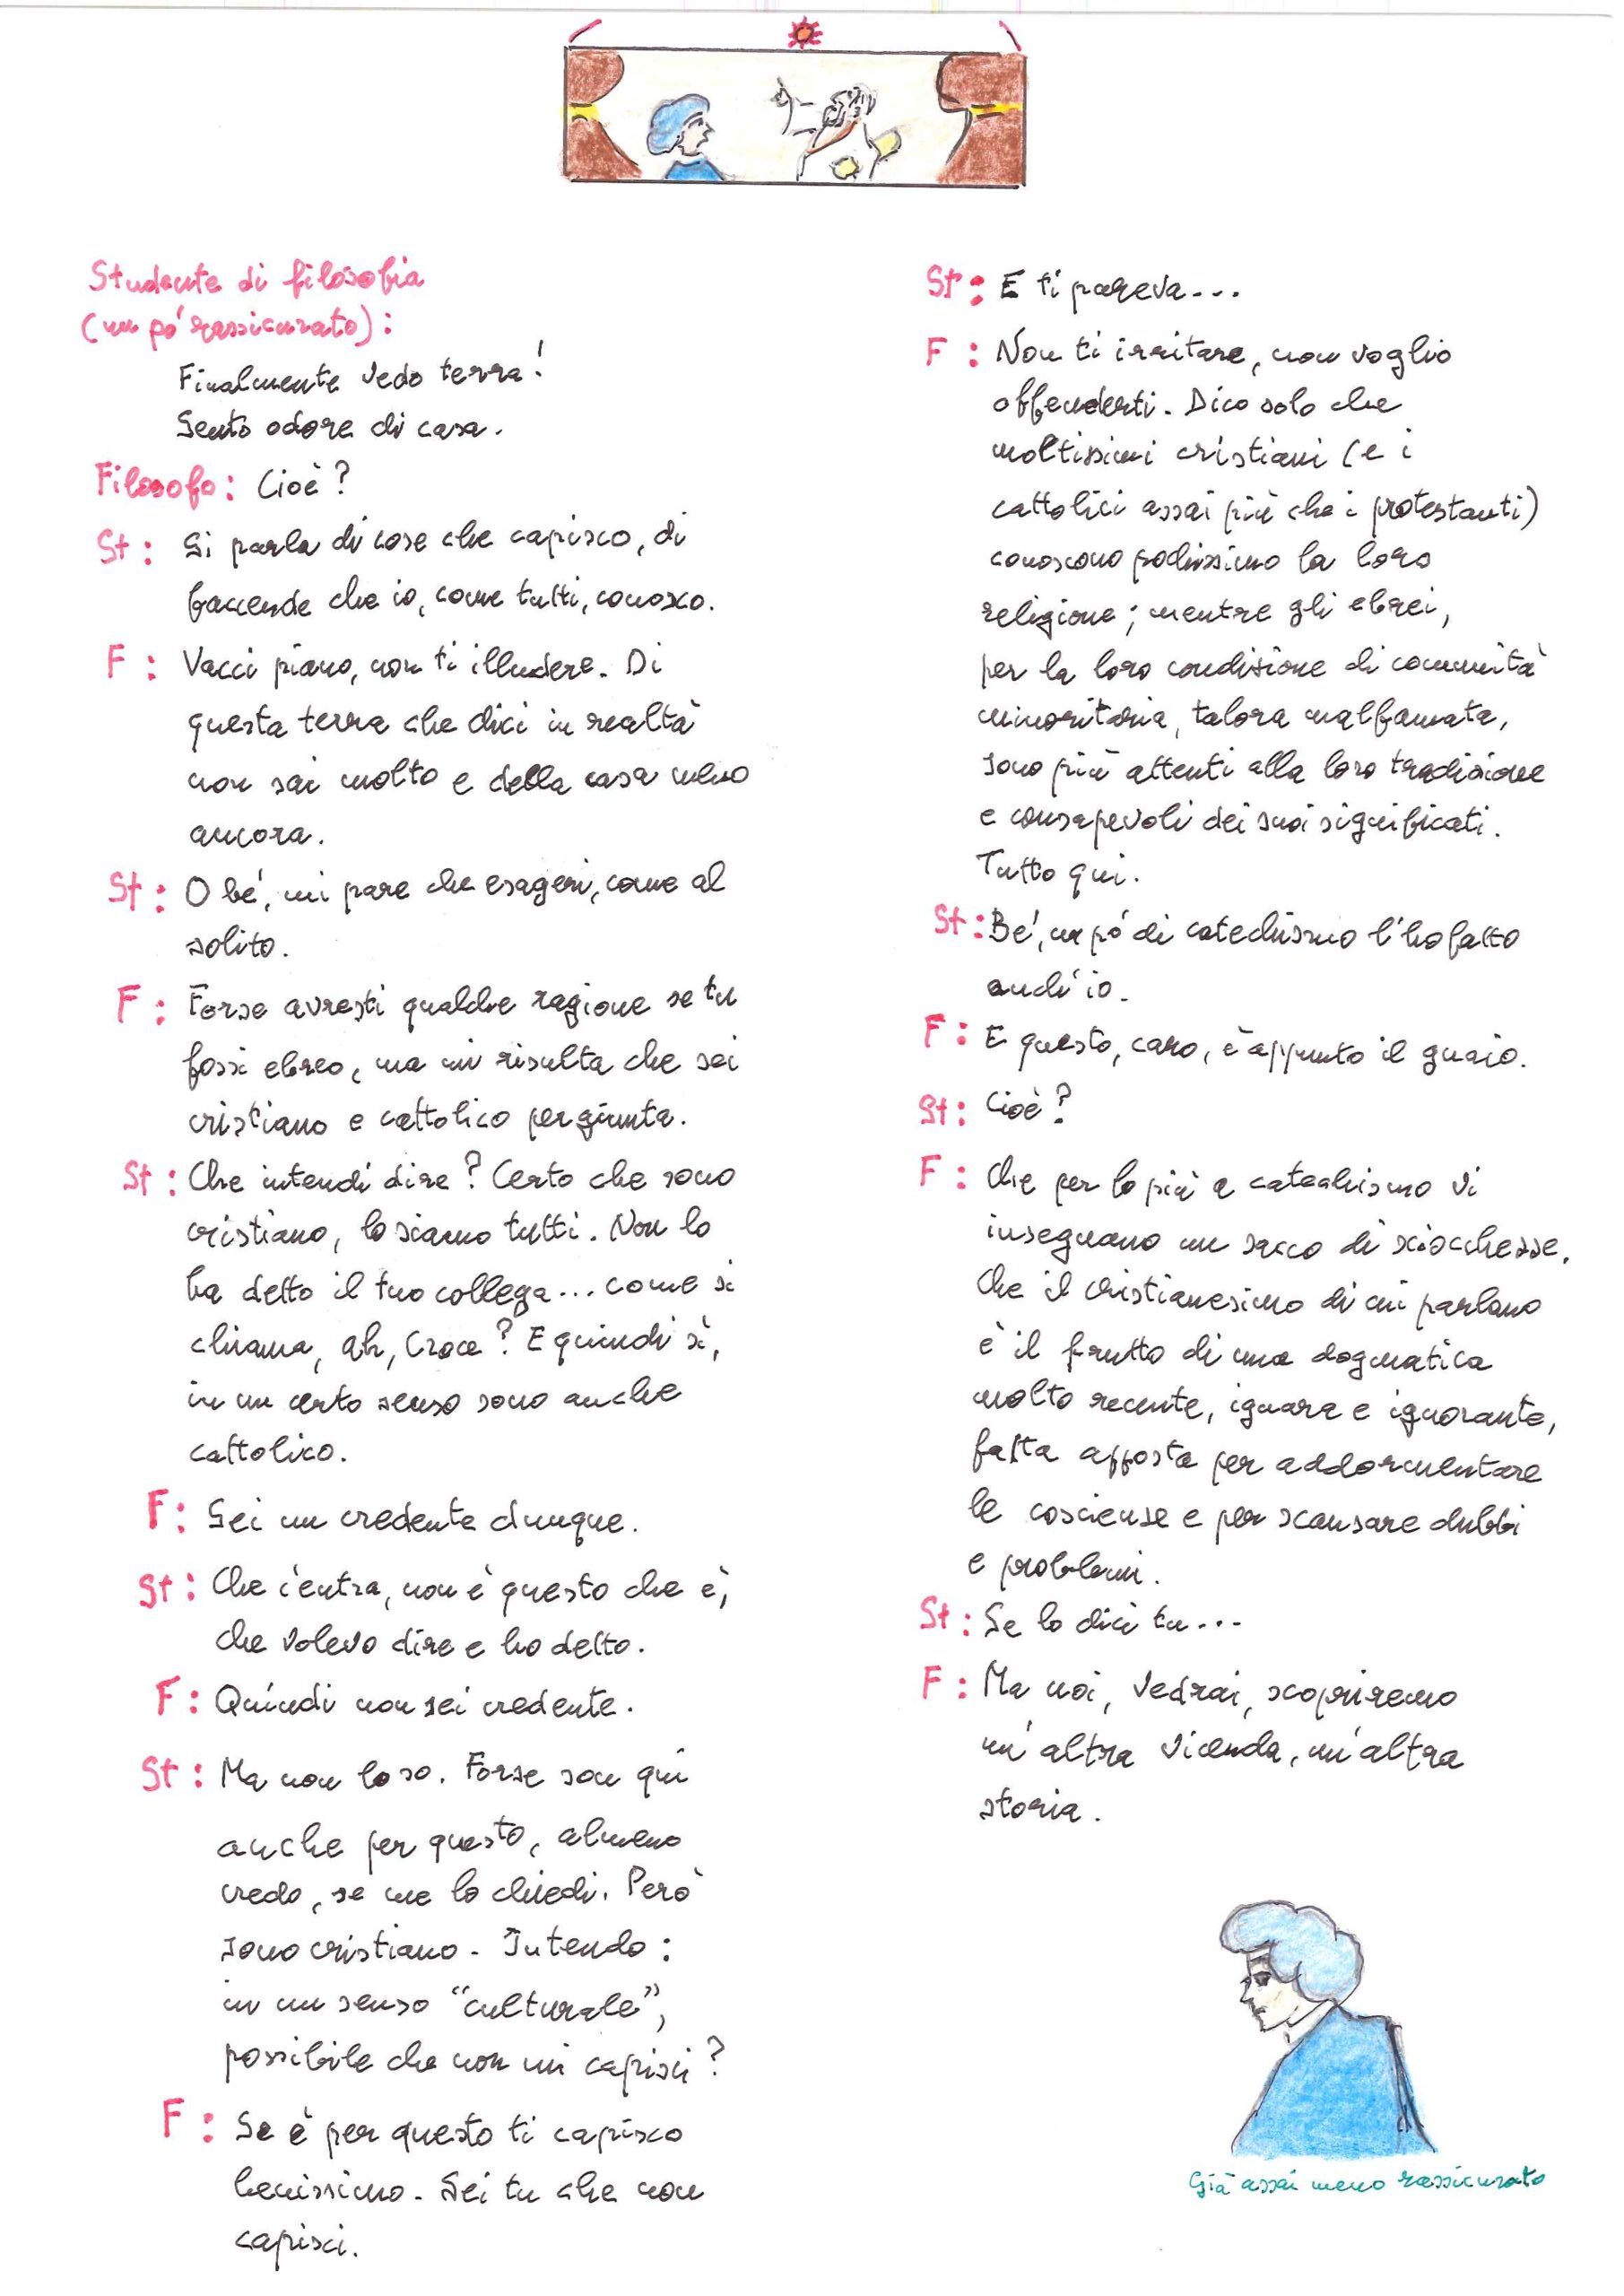 Studente di filosofia
(un po' rassicurato):
Finalmente vedo terra!
Sento odore di casa.
Filosofo: Cioè?
St: Si parla di cose che capisco, di
faccende che io, come tutti, conosco.
F: Vacci piano, non ti illudere. Di
questa terra che dici in realtà
non sai molto e della casa meno
ancora.
St: O be', mi pare che esageri, come al
solito.
F: Forse avresti qualche ragione se tu
fossi ebreo, ma mi risulta che sei
cristiano e cattolico per giunta.
St: Che intendi dire? Certo che sono
cristiano, lo siamo tutti. Non lo
ha detto il tuo collega... come si
chiama, ah, Croce? E quindi sì,
in un certo senso sono anche
cattolico.
F: Sei un credente dunque.
St: Che c'entra, non è questo che è,
che volevo dire e ho detto.
F: Quindi non sei credente.
St: Ma non lo so. Forse son qui
anche per questo, almeno
credo, se me lo chiedi. Però
sono cristiano. Intendo:
in un senso "culturale",
possibile che non mi capisci?
F: Se è per questo ti capisco
benissimo. Sei tu che non
capisci.
St: E ti pareva...
F: Non ti irritare, non voglio
offenderti. Dico solo che
moltissimi cristiani (e i
cattolici assai più che i protestanti)
conoscono pochissimo la loro
religione; mentre gli ebrei,
per la loro condizione di comunità
minoritaria, talora malfamata,
sono più attenti alla loro tradizione
e consapevoli dei suoi significati.
Tutto qui.
St: Be', un po' di catechismo l'ho fatto
anch'io.
F: E questo, caro, è appunto il guaio.
St: Cioè?
F: Che per lo più a catechismo vi
insegnano un sacco di sciocchezze.
Che il cristianesimo di cui parlano
è il frutto di una dogmatica
molto recente, ignara e ignorante,
fatta apposta per addormentare
le coscienze e per scansare dubbi
e problemi.
St: Se lo dici tu...
F: Ma noi, vedrai, scopriremo
un'altra vicenda, un'altra
storia.
Già assai meno rassicurato